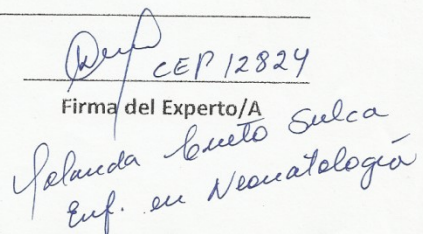 CEP 12824
Firma del Experto/A
Yolanda Cueto Sulca
Enf. en Neonatología